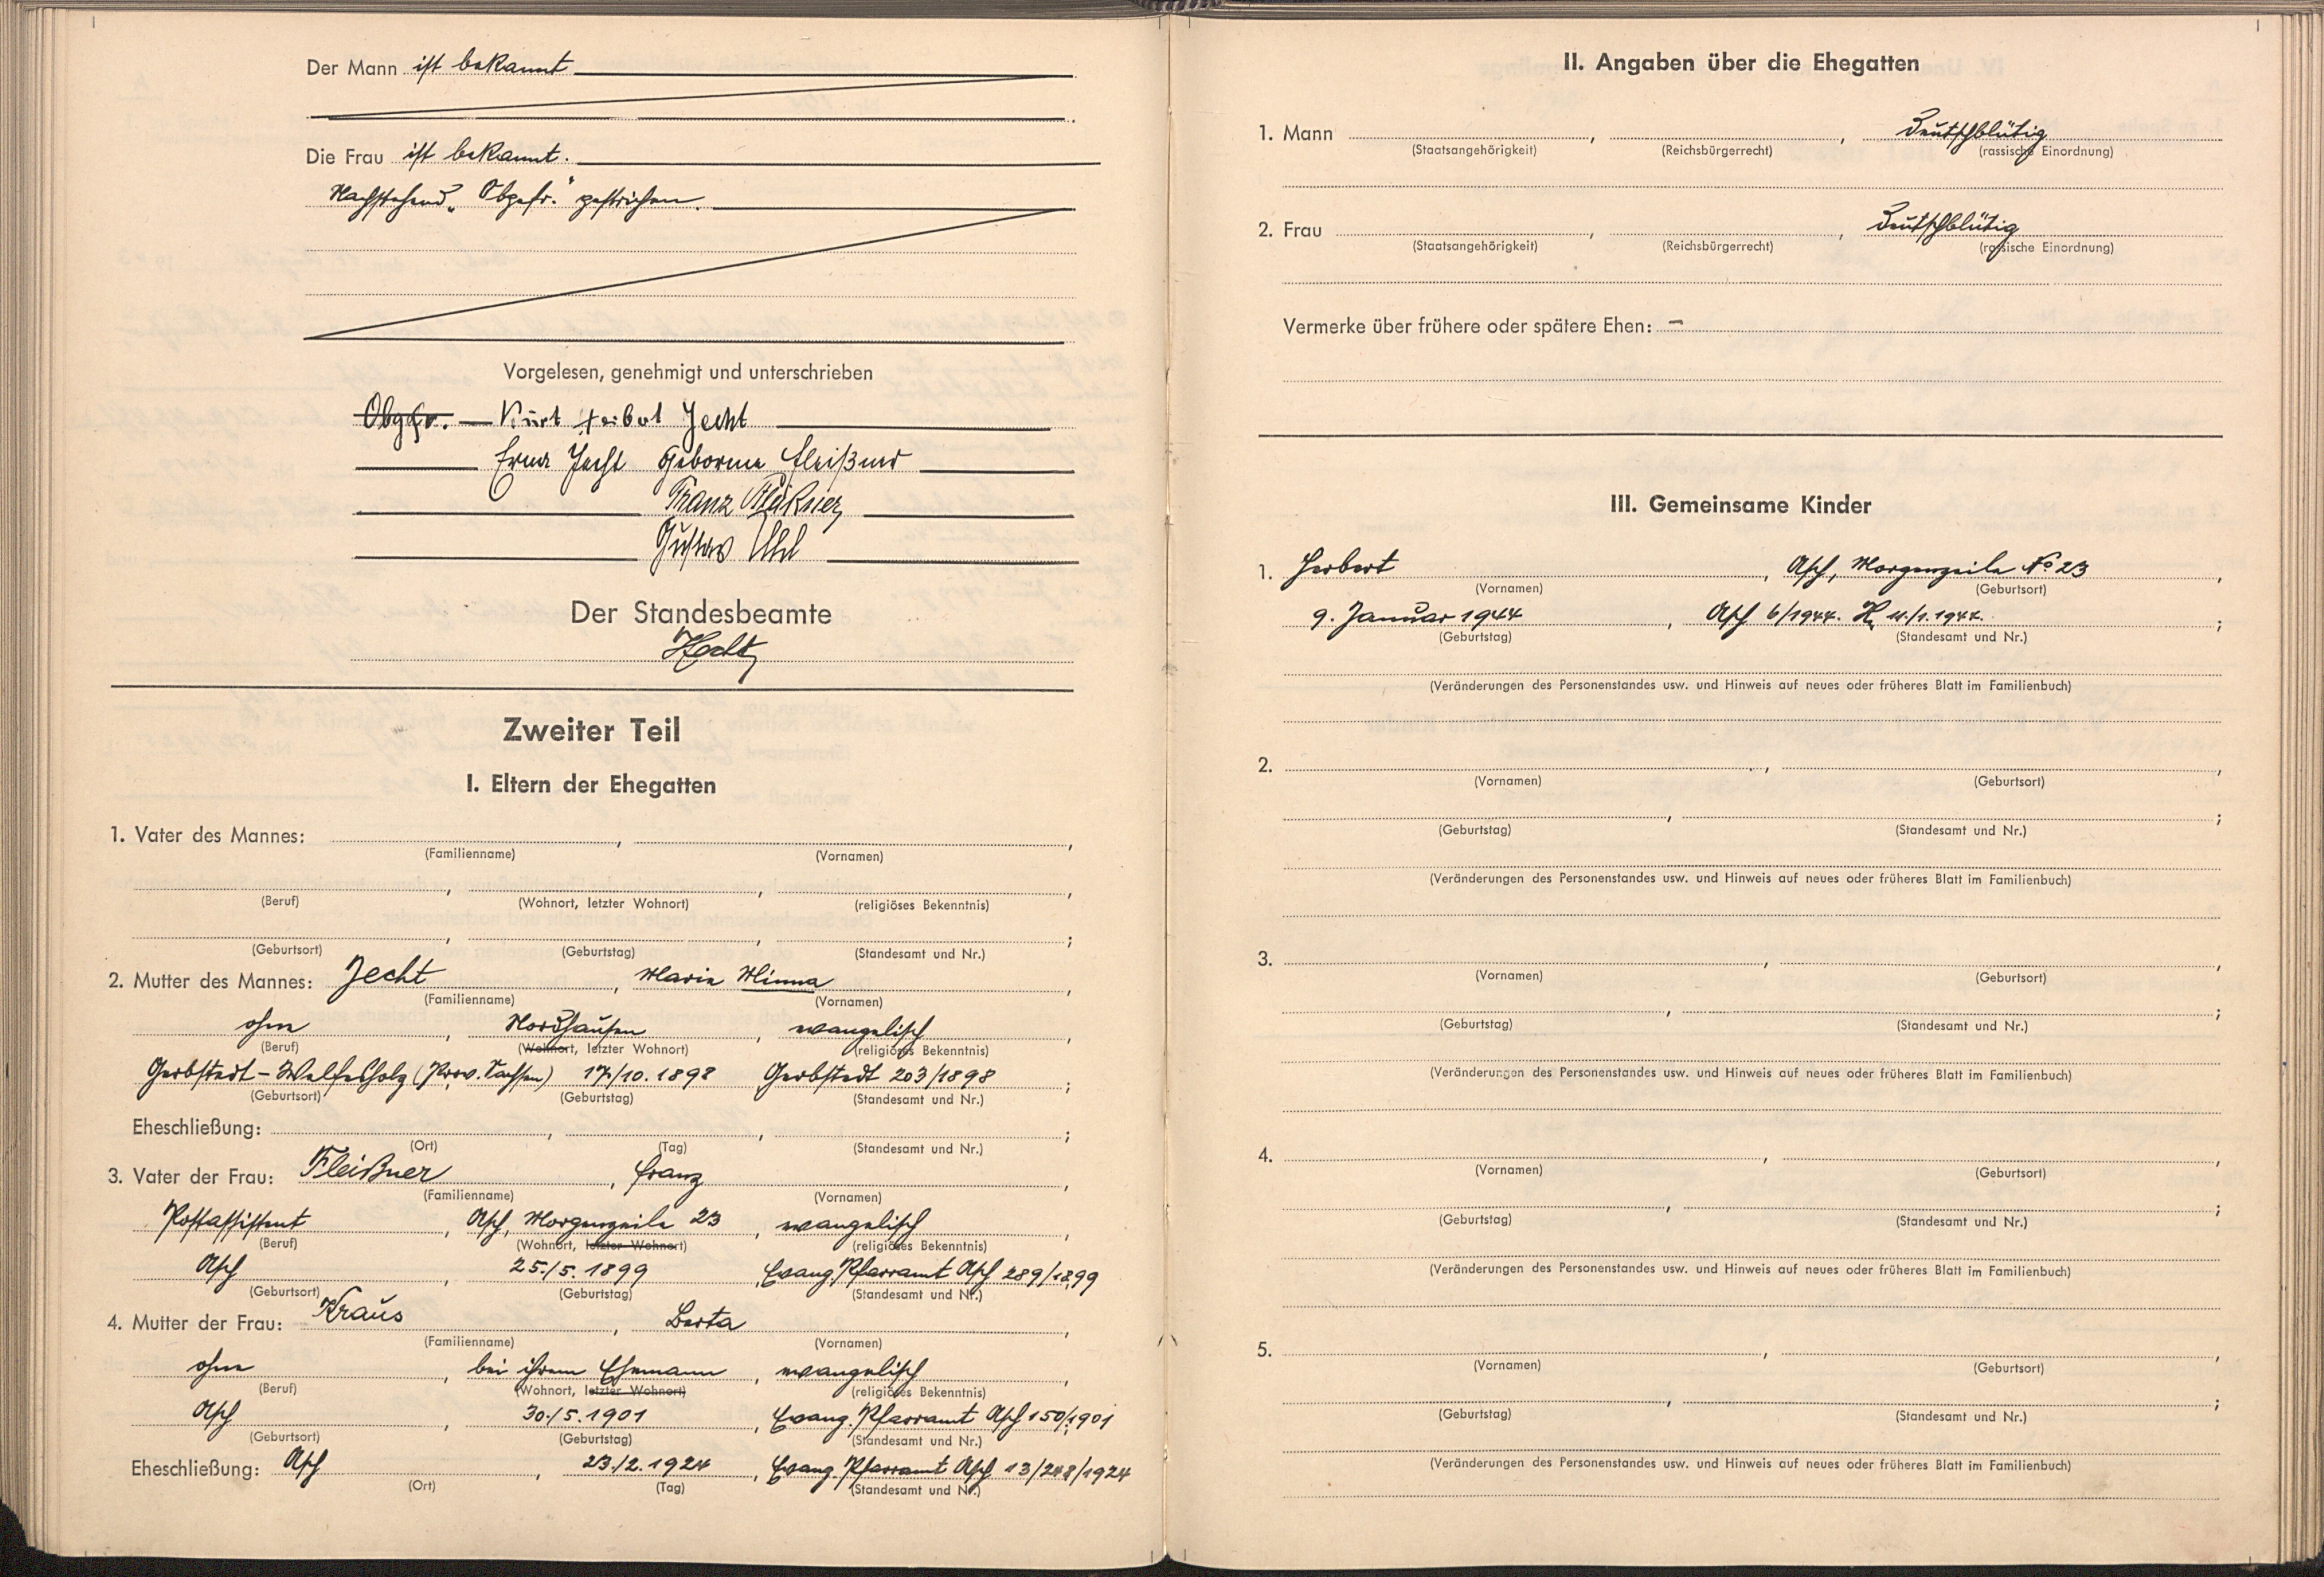 Der Mann ist bekannt
Die Frau ist bekannt.
Nachstehend „Obgefr." gestrichen.
Vorgelesen, genehmigt und unterschrieben
Obgfr. — Kurt Heibert Jecht
Erna Jecht geborene Fleißner
Franz
Gustav Uhl
Der Standesbeamte
Zweiter Teil
I. Eltern der Ehegatten
1. Vater des Mannes: , ,
(Familienname) (Vornamen)
, , ,
(Beruf) (Wohnort, letzter Wohnort) (religiöses Bekenntnis)
, , ;
(Geburtsort) (Geburtstag) (Standesamt und Nr.)
2. Mutter des Mannes: Jecht , Maria Minna ,
(Familienname) (Vornamen)
ohne , Nordhausen , evangelisch ,
(Beruf) (Wohnort, letzter Wohnort) (religiöses Bekenntnis)
Gerbstedt - Welfesholz (Prov. Sachsen) 17/10. 1898 Gerbstedt 203/1898 ;
(Geburtsort) (Geburtstag) (Standesamt und Nr.)
Eheschließung: , , ;
(Ort) (Tag) (Standesamt und Nr.)
3. Vater der Frau: Fleißner , Franz ,
(Familienname) (Vornamen)
Postassistent , Asch, Morgenzeile 23 , evangelisch ,
(Beruf) (Wohnort, letzter Wohnort) (religiöses Bekenntnis)
Asch , 25./5. 1899 , Evang. Pfarramt Asch 289/1899
(Geburtsort) (Geburtstag) (Standesamt und Nr.)
4. Mutter der Frau: Kraus , Berta ,
(Familienname) (Vornamen)
ohne , bei ihrem Ehemann , evangelisch ,
(Beruf) (Wohnort, letzter Wohnort) (religiöses Bekenntnis)
Asch , 30./5. 1901 , Evang. Pfarramt Asch 150/1901
(Geburtsort) (Geburtstag) (Standesamt und Nr.)
Eheschließung: Asch , 23./2. 1924 , Evang. Pfarramt Asch 13/248/1924
(Ort) (Tag) (Standesamt und Nr.)
II. Angaben über die Ehegatten
1. Mann , , Deutschblütig
(Staatsangehörigkeit) (Reichsbürgerrecht) (rassische Einordnung)
2. Frau , , Deutschblütig
(Staatsangehörigkeit) (Reichsbürgerrecht) (rassische Einordnung)
Vermerke über frühere oder spätere Ehen: –
III. Gemeinsame Kinder
1. Herbert , Asch, Morgenzeile No 23 ,
(Vornamen) (Geburtsort)
9. Januar 1944 , Asch 6/1944. ;
(Geburtstag) (Standesamt und Nr.)
(Veränderungen des Personenstandes usw. und Hinweis auf neues oder früheres Blatt im Familienbuch)
2. , ,
(Vornamen) (Geburtsort)
, ;
(Geburtstag) (Standesamt und Nr.)
(Veränderungen des Personenstandes usw. und Hinweis auf neues oder früheres Blatt im Familienbuch)
3. , ,
(Vornamen) (Geburtsort)
, ;
(Geburtstag) (Standesamt und Nr.)
(Veränderungen des Personenstandes usw. und Hinweis auf neues oder früheres Blatt im Familienbuch)
4. , ,
(Vornamen) (Geburtsort)
, ;
(Geburtstag) (Standesamt und Nr.)
(Veränderungen des Personenstandes usw. und Hinweis auf neues oder früheres Blatt im Familienbuch)
5. , ,
(Vornamen) (Geburtsort)
, ;
(Geburtstag) (Standesamt und Nr.)
(Veränderungen des Personenstandes usw. und Hinweis auf neues oder früheres Blatt im Familienbuch)